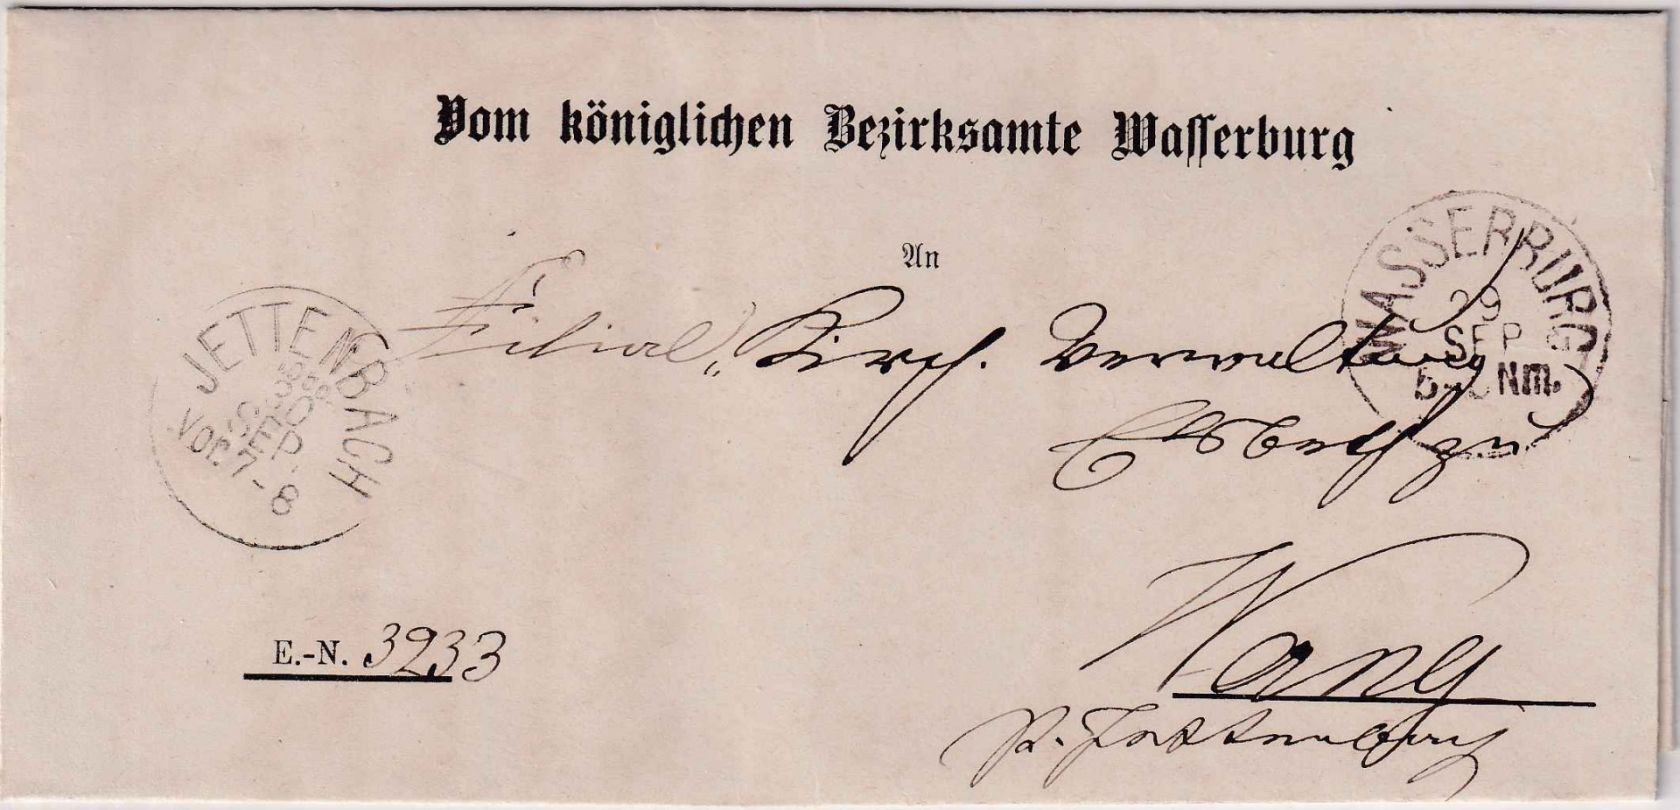 Vom königlichen Bezirksamte Wasserburg
An
WASSERBURG
29
SEP
5-6 Nm.
Filial Kirch. Verwaltung
Elsbeth zu
Wang
P. Jettenbach
JETTENBACH
30
SEP.
VOR. 7-8
E.-N. 3233